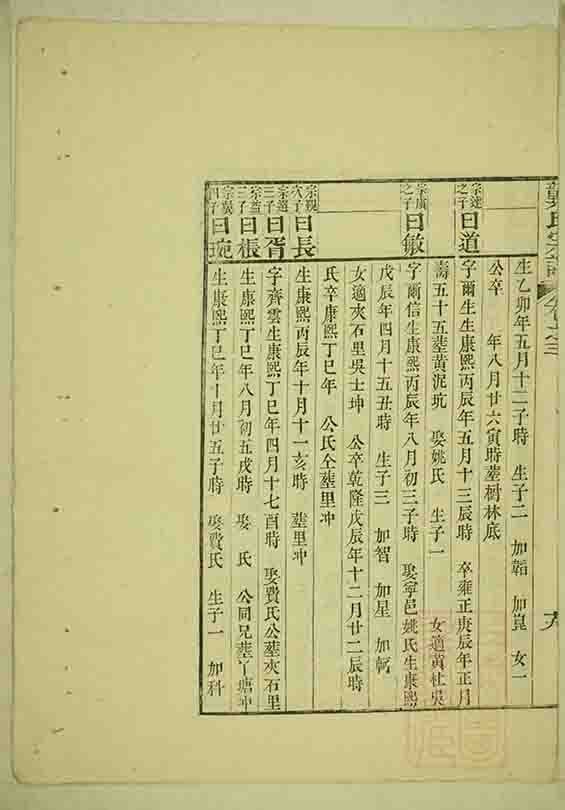 氏宗譜
卷之三
生乙卯年五月十二子時 生子二 加韜 加崑 女一
公卒 年八月廿六寅時塟樹林底
宗達之子曰道 字爾生生康熙丙辰年五月十三辰時 卒雍正庚辰年正月
壽五十五塟黃泥坑 娶姚氏 生子一 女適黃杜吳
宗廣之子曰敏 字爾信生康熙丙辰年八月初三子時 娶寧邑姚氏生康熙
戊辰年四月十五丑時 生子三 加智 加星 加
女適夾石里吳士坤 公卒乾隆戊辰年十二月廿二辰時
氏卒康熙丁巳年 公氏仝塟里冲
宗 次子曰長 生康熙丙辰年十月十一亥時 塟里冲
宗 三子曰胥 字齊雲生康熙丁巳年四月十七酉時 娶費氏公塟夾石里
宗 三子曰根 生康熙丁巳年八月初五戌時 娶 氏 公同兄塟丫塘冲
宗 四子曰琬 生康熙丁巳年十月廿五子時 娶費氏 生子一 加科